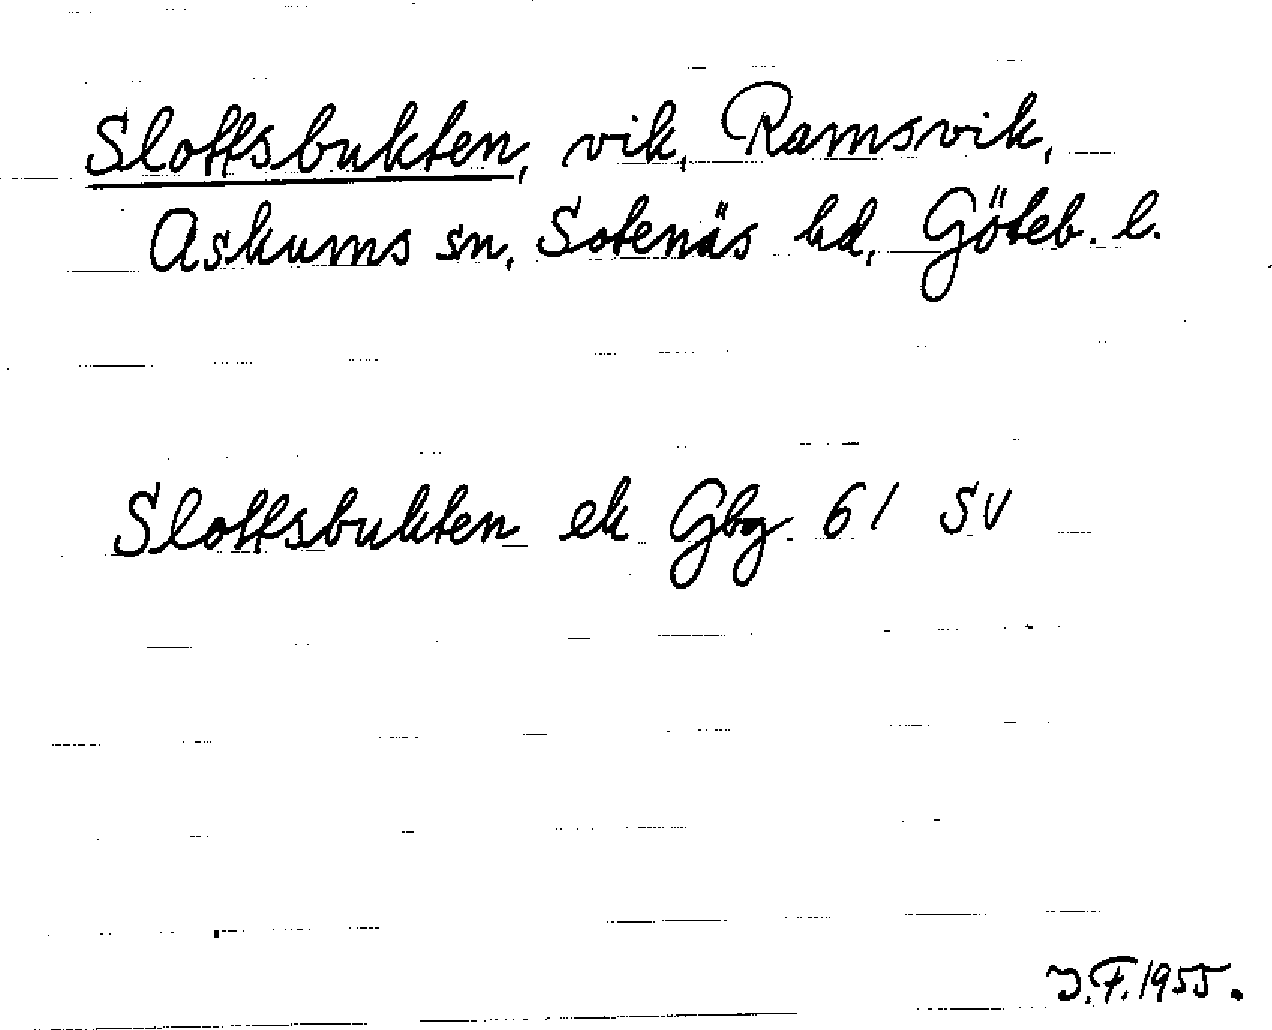 Slottsbukten, vik, Ramsvik,
Askums sn, Sotenäs hd, Göteb. l.
Slottsbukten ek Gbg. 61 SV
J.F. 1955.